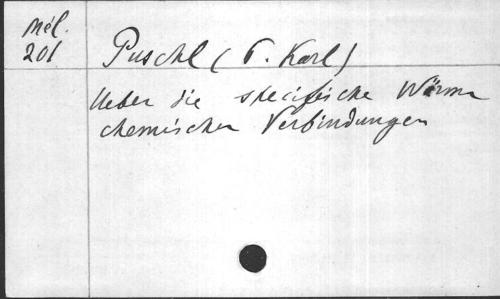 Mél.
201
Puschl (P. Karl)
Ueber die specifische Wärme
chemischer Verbindungen